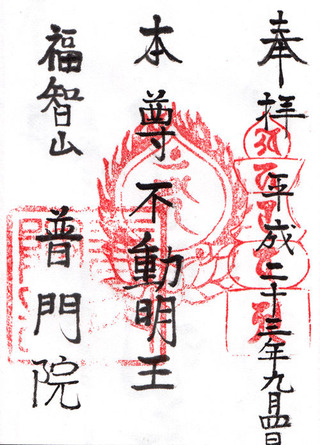 奉拝 平成二十三年九月四日
本尊不動明王
福智山 普門院